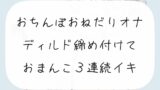 おちんぽおねだりオナ
ディルド締め付けて
おまんこ３連続イキ